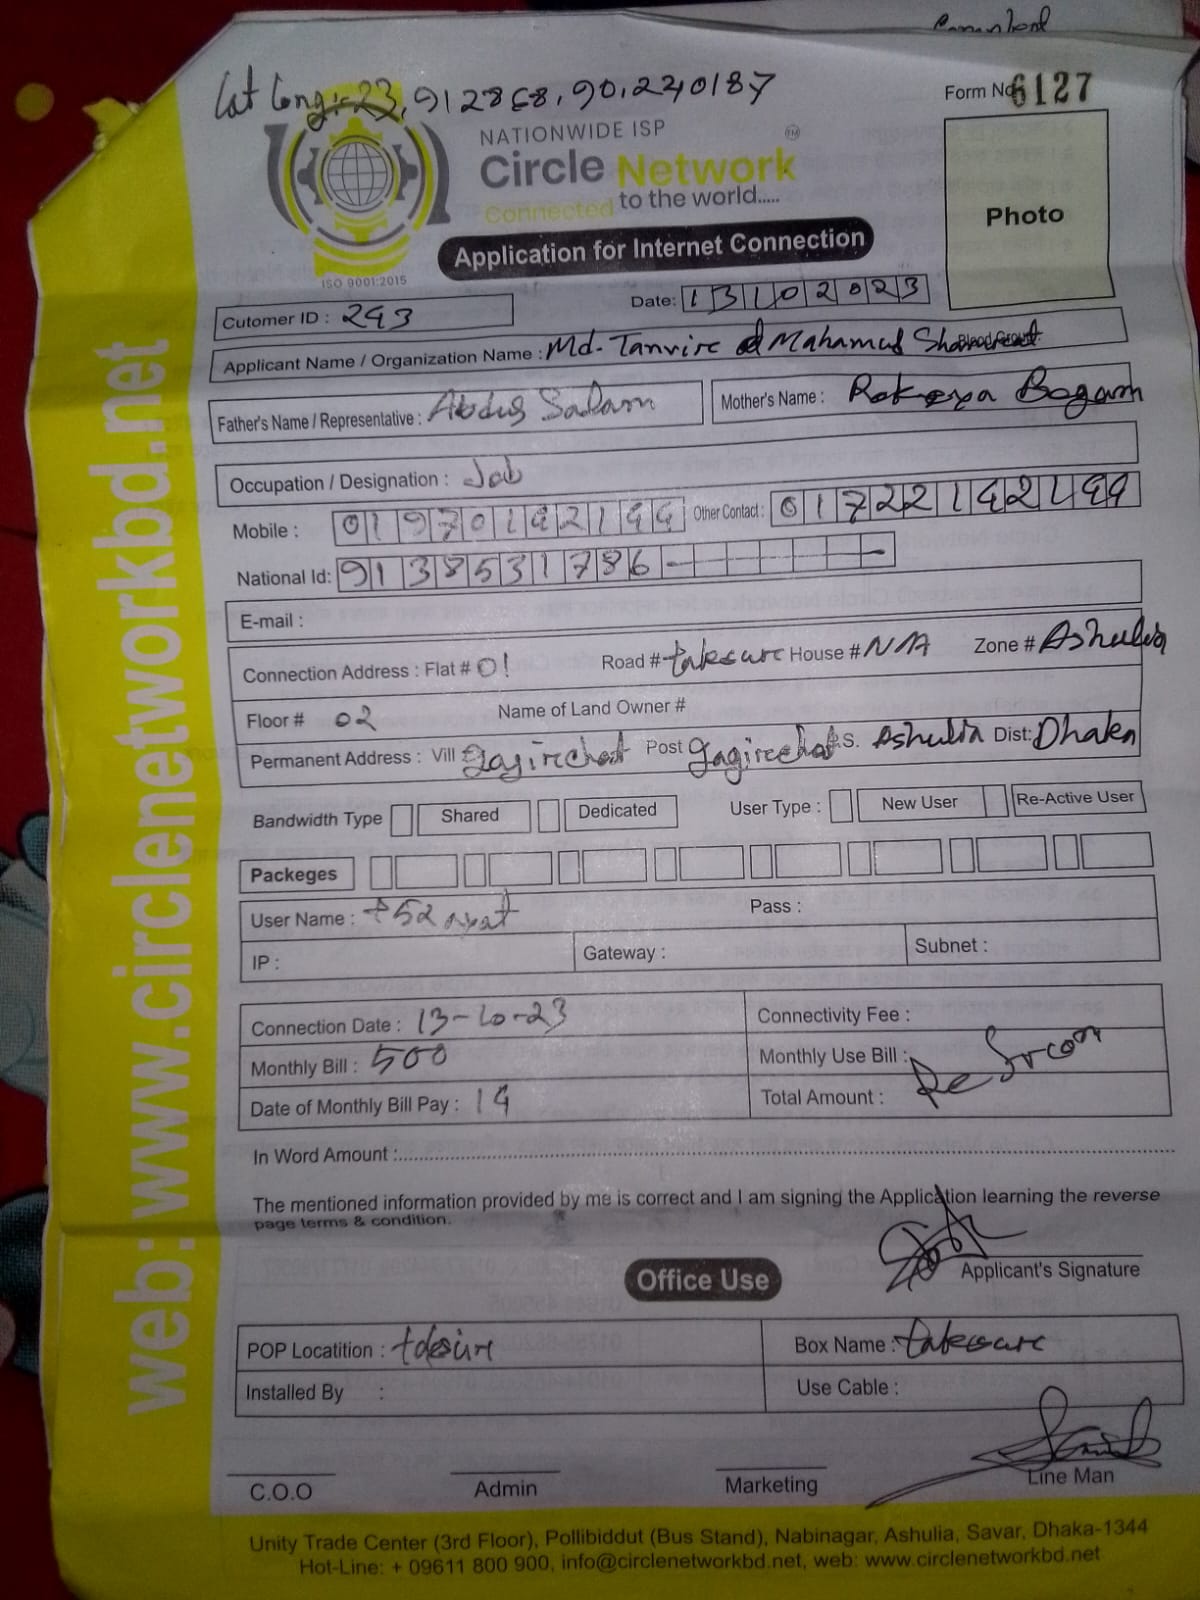 Lat Long:- 23.912868, 90.240187
Form No 6127
NATIONWIDE ISP
Circle Network
Connected to the world.....
ISO 9001:2015
Application for Internet Connection
Photo
Date: 13102023
Cutomer ID : 293
Applicant Name / Organization Name : Md. Tanvire Mahamud
Father's Name / Representative : Abdus Salam Mother's Name : Rokeya Begam
Occupation / Designation : Job
Mobile : Other Contact :
National Id: 9138531786
E-mail :
Connection Address : Flat # 01 Road # House # N/A Zone # Ashulia
Floor # 02 Name of Land Owner #
Permanent Address : Vill Gagirchat Post Gagirchat P.S. Ashulia Dist: Dhaka
Bandwidth Type Shared Dedicated User Type : New User Re-Active User
Packeges
User Name : Pass :
IP : Gateway : Subnet :
Connection Date : 13-10-23 Connectivity Fee :
Monthly Bill : 500 Monthly Use Bill :
Date of Monthly Bill Pay : Total Amount :
In Word Amount :
The mentioned information provided by me is correct and I am signing the Application learning the reverse
page terms & condition.
Applicant's Signature
Office Use
POP Locatition : Box Name :
Installed By : Use Cable :
C.O.O Admin Marketing Line Man
Unity Trade Center (3rd Floor), Pollibiddut (Bus Stand), Nabinagar, Ashulia, Savar, Dhaka-1344
Hot-Line: + 09611 800 900, info@circlenetworkbd.net, web: www.circlenetworkbd.net
web: www.circlenetworkbd.net